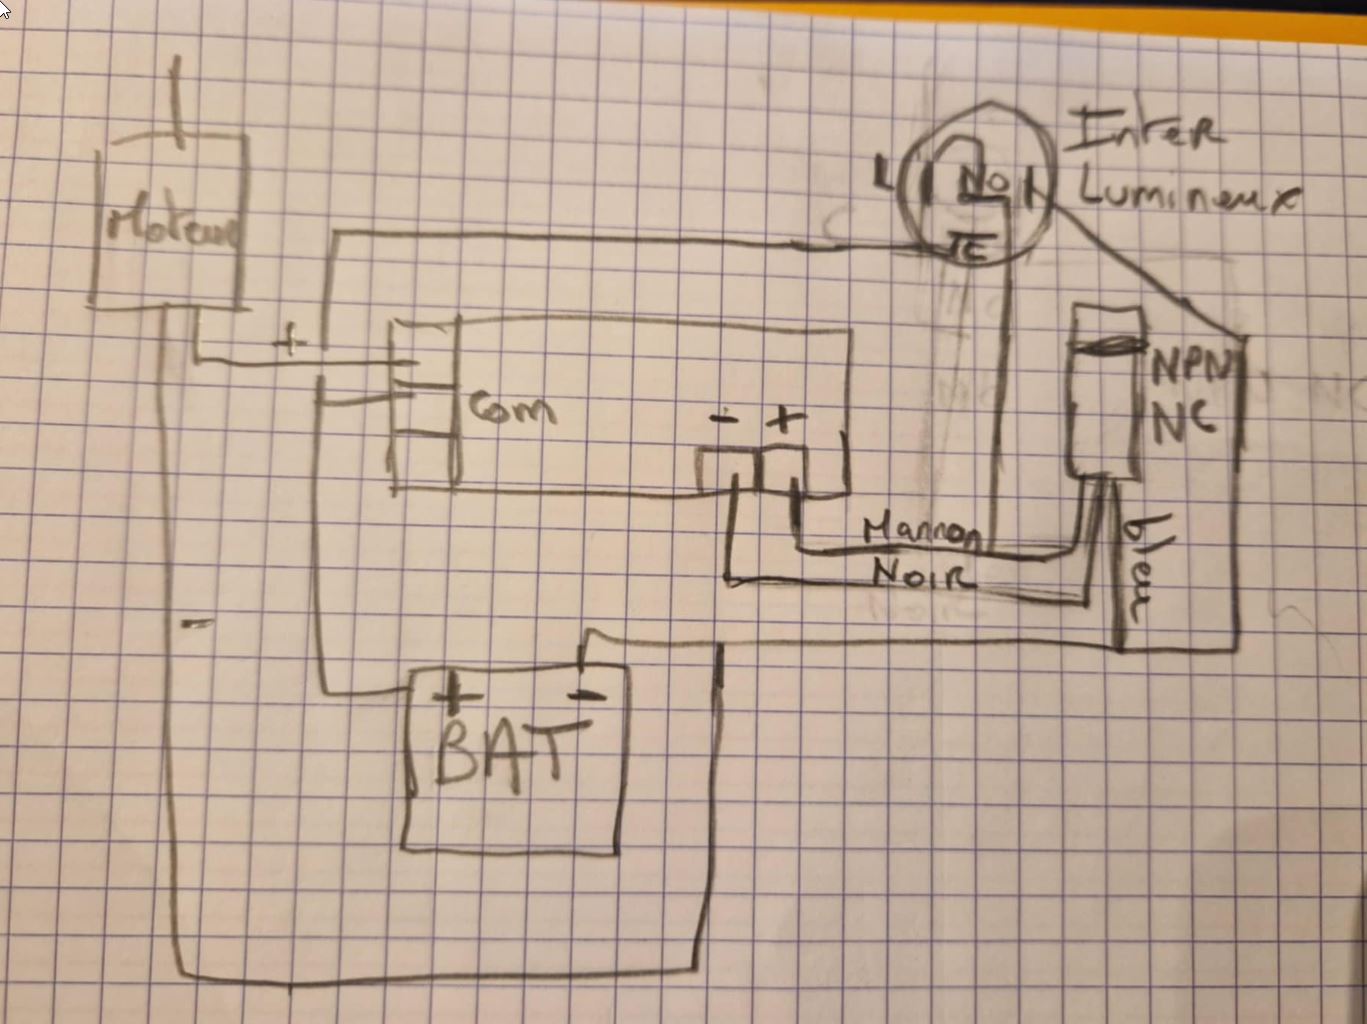 Inter
L NO N Lumineux
C
Moteur
+
NPN
Com
- +
NC
Marron
Noir
bleu
-
+ -
BAT